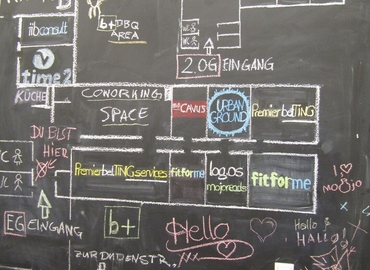 iibconsult
b+ DBQ
AREA
V
time2
2.OG EINGANG
KÜCHE
COWORKING
SPACE
CAVUS
URBAN
GROUND
PremierbelTING
DU BIST
HIER
PremierbelTINGservices
fitforme
logos
mojoreads
fitforme
I ♡
MOJO
EG EINGANG
b+
Hello
Hallo
HALLO!
ZUR DUDENSTR.